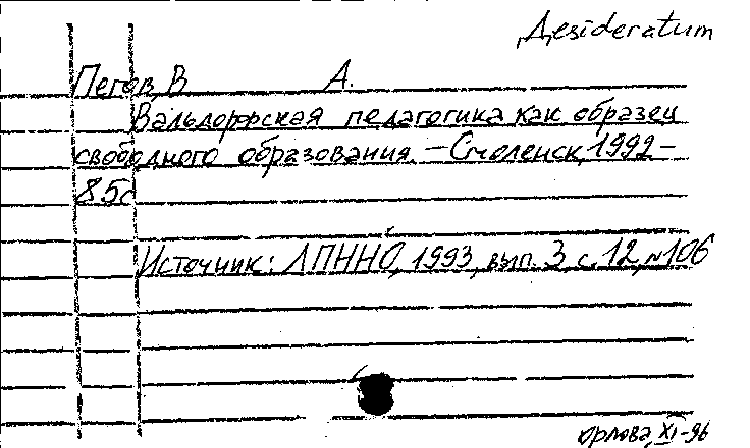 Desideratum
Пегов, В. А.
Вальдорфская педагогика как образец
свободного образования. – Смоленск, 1992 –
85с
Источник: ЛПННО, 1993, вып. 3, с. 12, №106
Орлова, XI-96